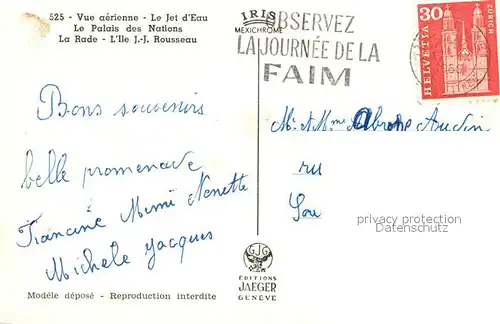 525 - Vue aérienne - Le Jet d'Eau
Le Palais des Nations
La Rade - L'Ile J.-J. Rousseau
IRIS
MEXICHROME
OBSERVEZ
LA JOURNÉE DE LA
FAIM
30
HELVETIA
ZÜRICH
Bons souvenirs
belle promenade
Francine Mimi Nenette
Michele Jacques
Mr et Mme Audin
privacy protection
Datenschutz
EJG
EDITIONS
JAEGER
GENÈVE
Modèle déposé - Reproduction interdite